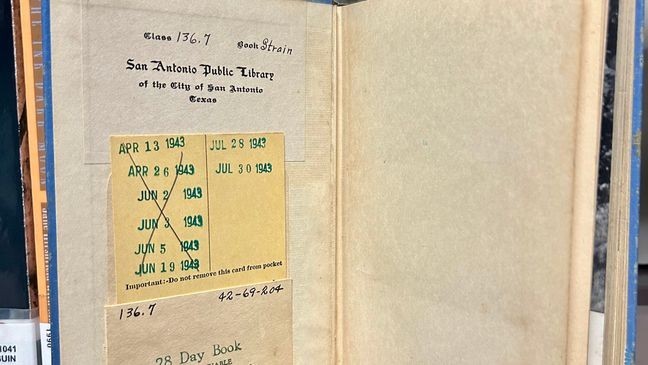 Class 136.7 Book Strain
San Antonio Public Library
of the City of San Antonio
Texas
APR 13 1943
APR 26 1943
JUN 2 1943
JUN 3 1943
JUN 5 1943
JUN 19 1943
JUL 28 1943
JUL 30 1943
Important:-Do not remove this card from pocket
136.7 42-69-204
28 Day Book
1041
0661